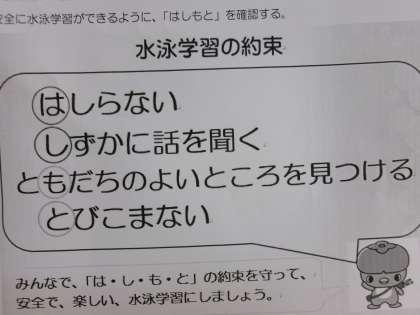 安全に水泳学習ができるように、「はしもと」を確認する。
水泳学習の約束
はしらない
しずかに話を聞く
ともだちのよいところを見つける
とびこまない
みんなで、「は・し・も・と」の約束を守って、
安全で、楽しい、水泳学習にしましょう。